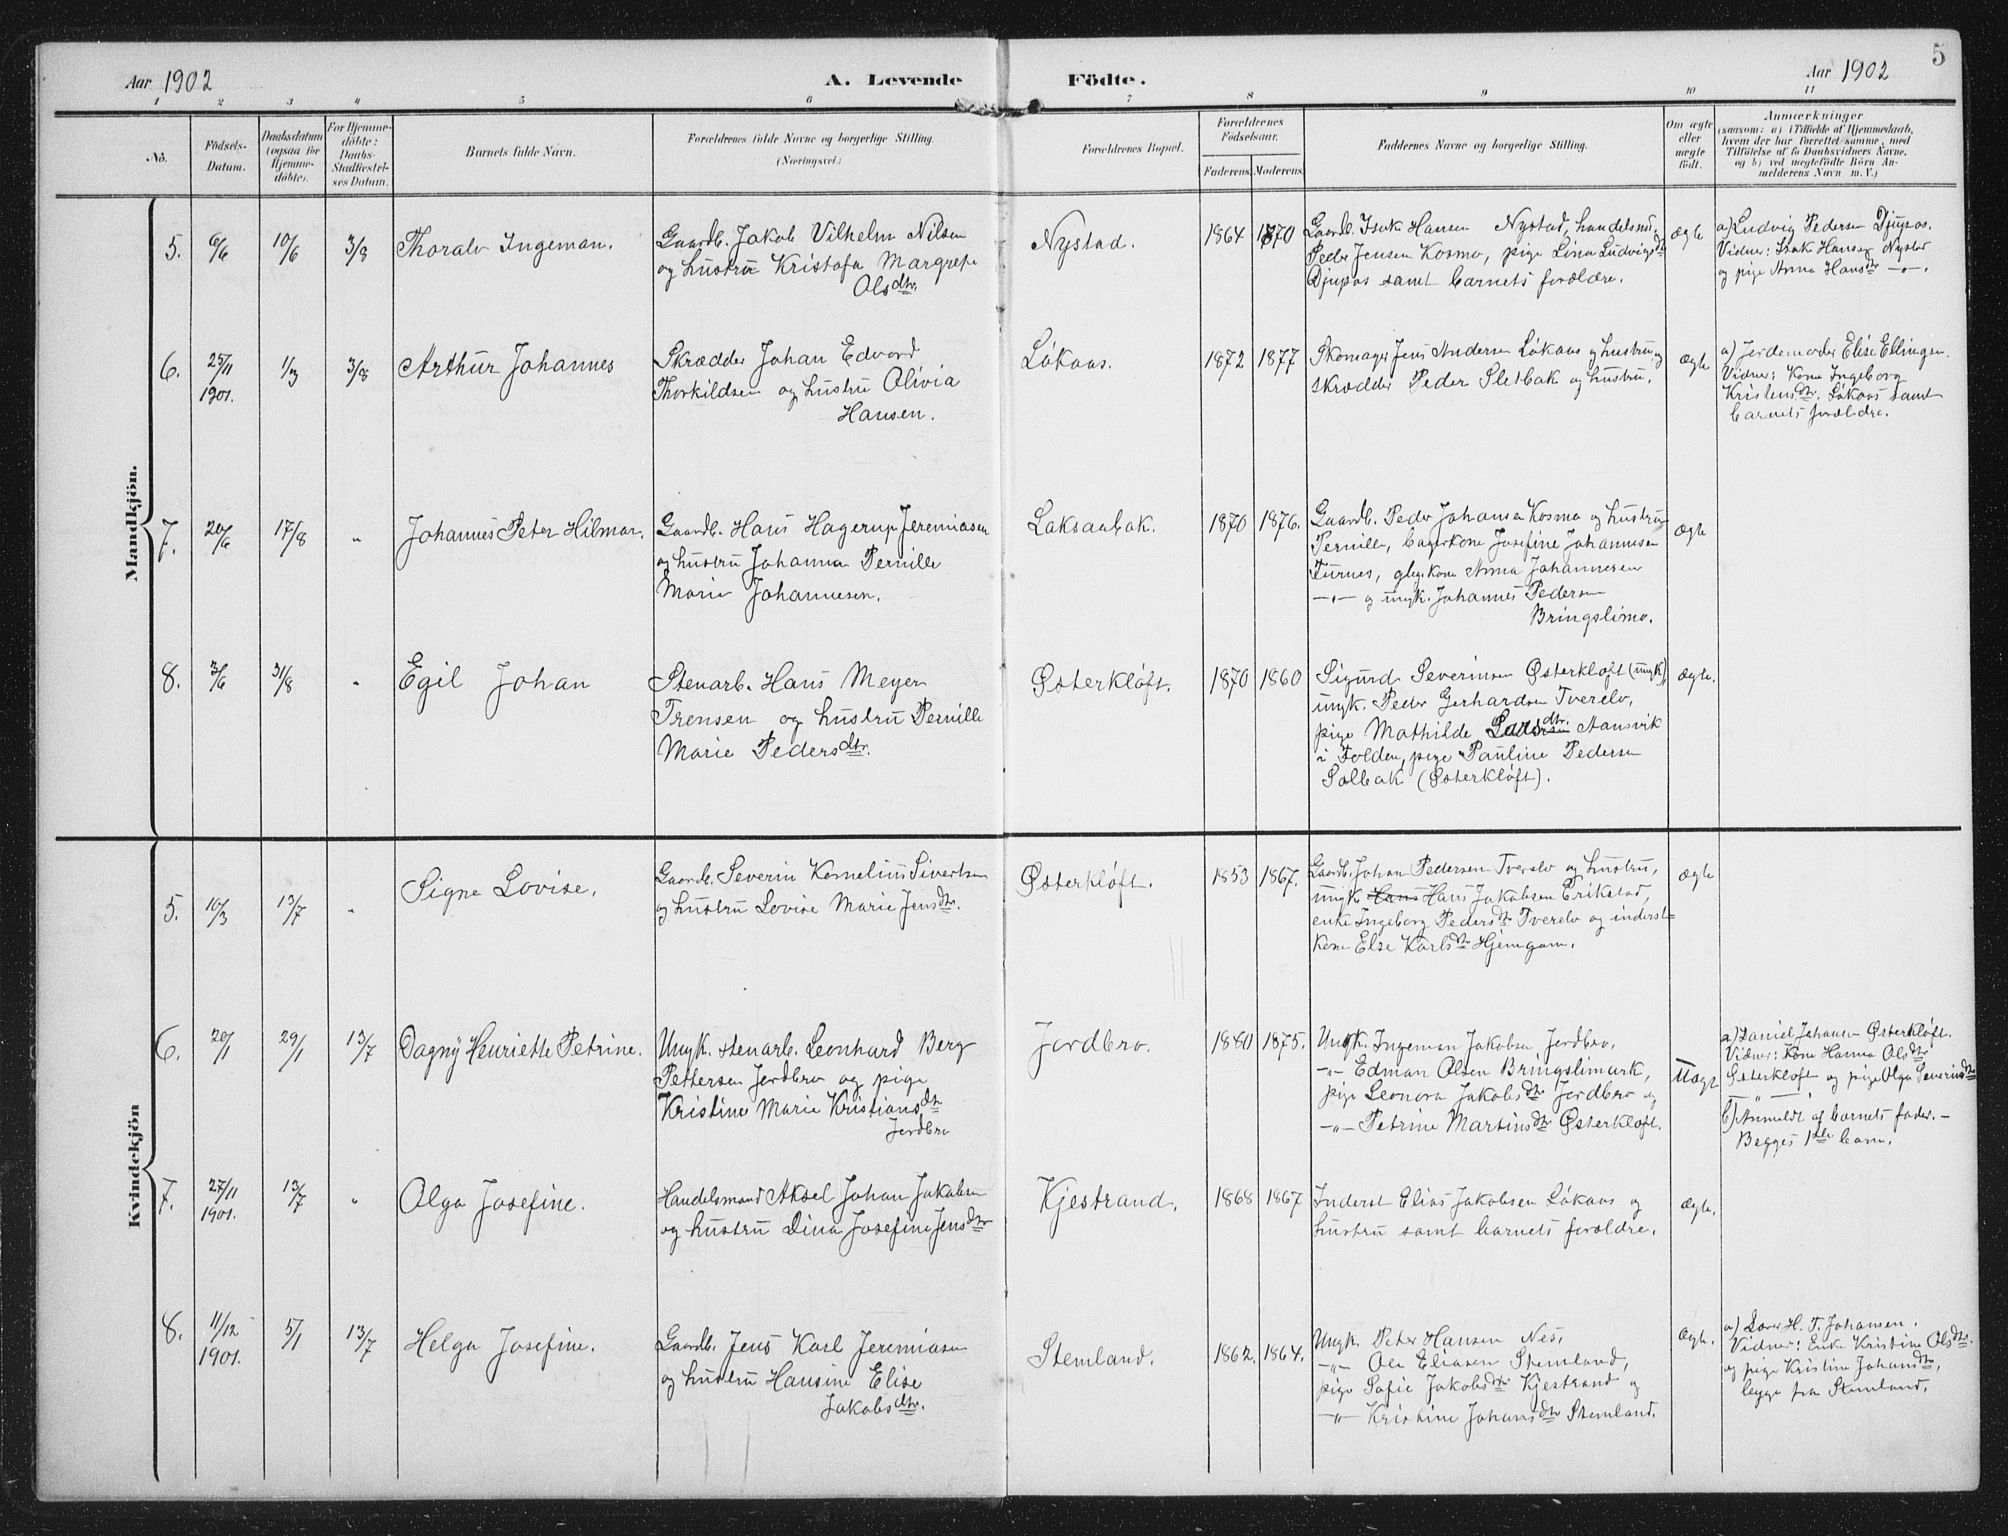 5
Aar 1902
A. Levende Födte.
Aar 1902
1 2 3 4 5 6 7 8 9 10 11
No.
Födsels-Datum.
Daabsdatum (ogsaa for Hjemme-döbte).
For Hjemme-döbte: Daabs-Stadfæstel-ses Datum.
Barnets fulde Navn.
Forældrenes fulde Navne og borgerlige Stilling.
(Næringsvei.)
Forældrenes Bopæl.
Forældrenes Födselsaar.
Faderens. Moderens.
Faddernes Navne og borgerlige Stilling.
Om ægte eller uægte födt.
Anmærkninger
(saasom: a) i Tilfælde af Hjemmedaab,
hvem der har forrettet samme, med
Tilföielse af to Daabsvidners Navne,
og b) ved uegtefödte Börn An-
melderens Navn m. V.)
Mandkjön.
5. 6/6 10/6 3/8 Thoralv Ingeman.
Gaardb. Jakob Vilhelm Nilsen
og hustru Kristofa Margrete
Olsdtr.
Nystad.
1864 1870
Gaardb. Isak Hansen Nystad, handelsmd.
Peder Jensen Kosmo, pige Lina Ludvigsdtr
Djupos samt barnets forældre.
ægte
a) Ludvig Pedersen Djupos.
Vidner: Isak Hansen Nystad
og pige Anna Hansdtr —"—.
6. 25/11 1901. 1/3 3/8 Arthur Johannes
Skrædder Johan Edvard
Thorkildsen og hustru Olivia
Hansen.
Løkaas.
1872 1877
Skomager Jens Andersen Løkaas og hustru, og
skrædder Peder Sletbak og hustru.
ægte
a) Jordemoder Elise Ellingsen.
Vidner: Kone Ingeborg
Kristensdtr. Løkaas samt
barnets forældre.
7. 20/6 17/8 " Johannes Peter Hilmar.
Gaardb. Hans Hagerup Jeremiasen
og hustru Johanna Pernille
Marie Johannesen.
Laksaabak.
1870 1876.
Gaardb. Peder Johansen Kosmo og hustru
Pernille, bagerkone Josefine Johannesen
Furnes, Anna Johannesen
—"— og ungk. Johannes Pedersen
Bringslimo.
ægte
8. 3/6 31/8 " Egil Johan
Stenarb. Hans Meyer
Trensen og hustru Pernille
Marie Pedersdtr.
Østerkløft.
1870 1860
Sigurd Severinsen Østerkløft (ungk),
ungk. Peder Gerhardsen Tverelv,
pige Mathilde Larsdtr. Aansvik
i Folden, pige Pauline Pedersen
Solbak (Østerkløft).
ægte.
Kvindekjön
5. 10/3 13/7 " Signe Lovise.
Gaardb. Severin Kornelius Sivertsen
og hustru Lovise Marie Jensdtr.
Østerkløft.
1853 1867.
Gaardb. Johan Pedersen Tverelv og hustru,
ungk. Hans Hans Jakobsen Erikstad,
enke Ingeborg Pedersdtr Tverelv og inderst-
kone Else Karlsdtr Hjemgam.
ægte
6. 20/1 29/1 13/7 Dagny Henriette Petrine.
Ungk. stenarb. Leonhard Berg
Pettersen Jordbro og pige
Kristine Marie Kristiansdtr
Jordbro
Jordbro.
1880 1875.
Ungk. Ingeman Jakobsen Jordbro.
—"— Edman Olsen Bringslimark,
pige Leonora Jakobsdtr Jordbro og
—"— Petrine Martinsdtr Østerkløft.
Uægte
a) Daniel Johansen Østerkløft.
Vidner: Kone Hanna Olsdtr
Østerkløft og pige Olga Severinsdtr
—"—
b) Anmeldt af barnets fader. –
Begges 1ste barn.
7. 27/11 1901. 13/7 " Olga Josefine.
Handelsmand Aksel Johan Jakobsen
og hustru Dina Josefine Jensdtr
Kjestrand.
1868 1867
Inderst Elias Jakobsen Løkaas og
hustru samt barnets forældre.
ægte.
8. 11/12 1901. 5/1 13/7 Helga Josefine.
Gaardb. Jens Karl Jeremiasen
og hustru Hansine Elise
Jakobsdtr.
Stemland.
1862. 1864.
Ungk. Peter Hansen Nes,
—"— Ole Eliasen Stemland,
pige Sofie Jakobsdtr Kjestrand og
—"— Kristine Johansdtr Stemland.
ægte.
a) Lærer H. T. Johansen.
Vidner: Enke Kristine Olsdtr.
og pige Kristine Johansdtr,
begge fra Stemland.